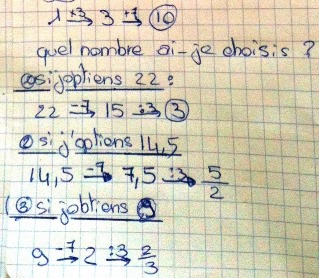 1 ×3→ 3 +7→ 10
quel nombre ai-je choisis ?
① si j'obtiens 22 :
22 -7→ 15 :3→ 3
② si j'obtiens 14,5
14,5 -7→ 7,5 :3→ 5/2
③ si j'obtiens 9
9 -7→ 2 :3→ 2/3